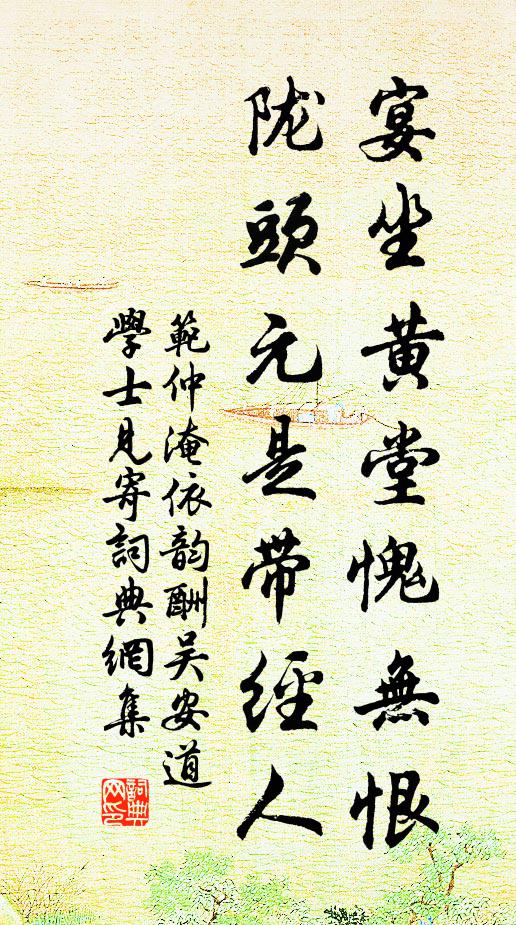 宴坐黃堂愧無恨
陇頭元是帶經人
範仲淹依韵酬吴安道
學士見寄詞典網集
詞典网印